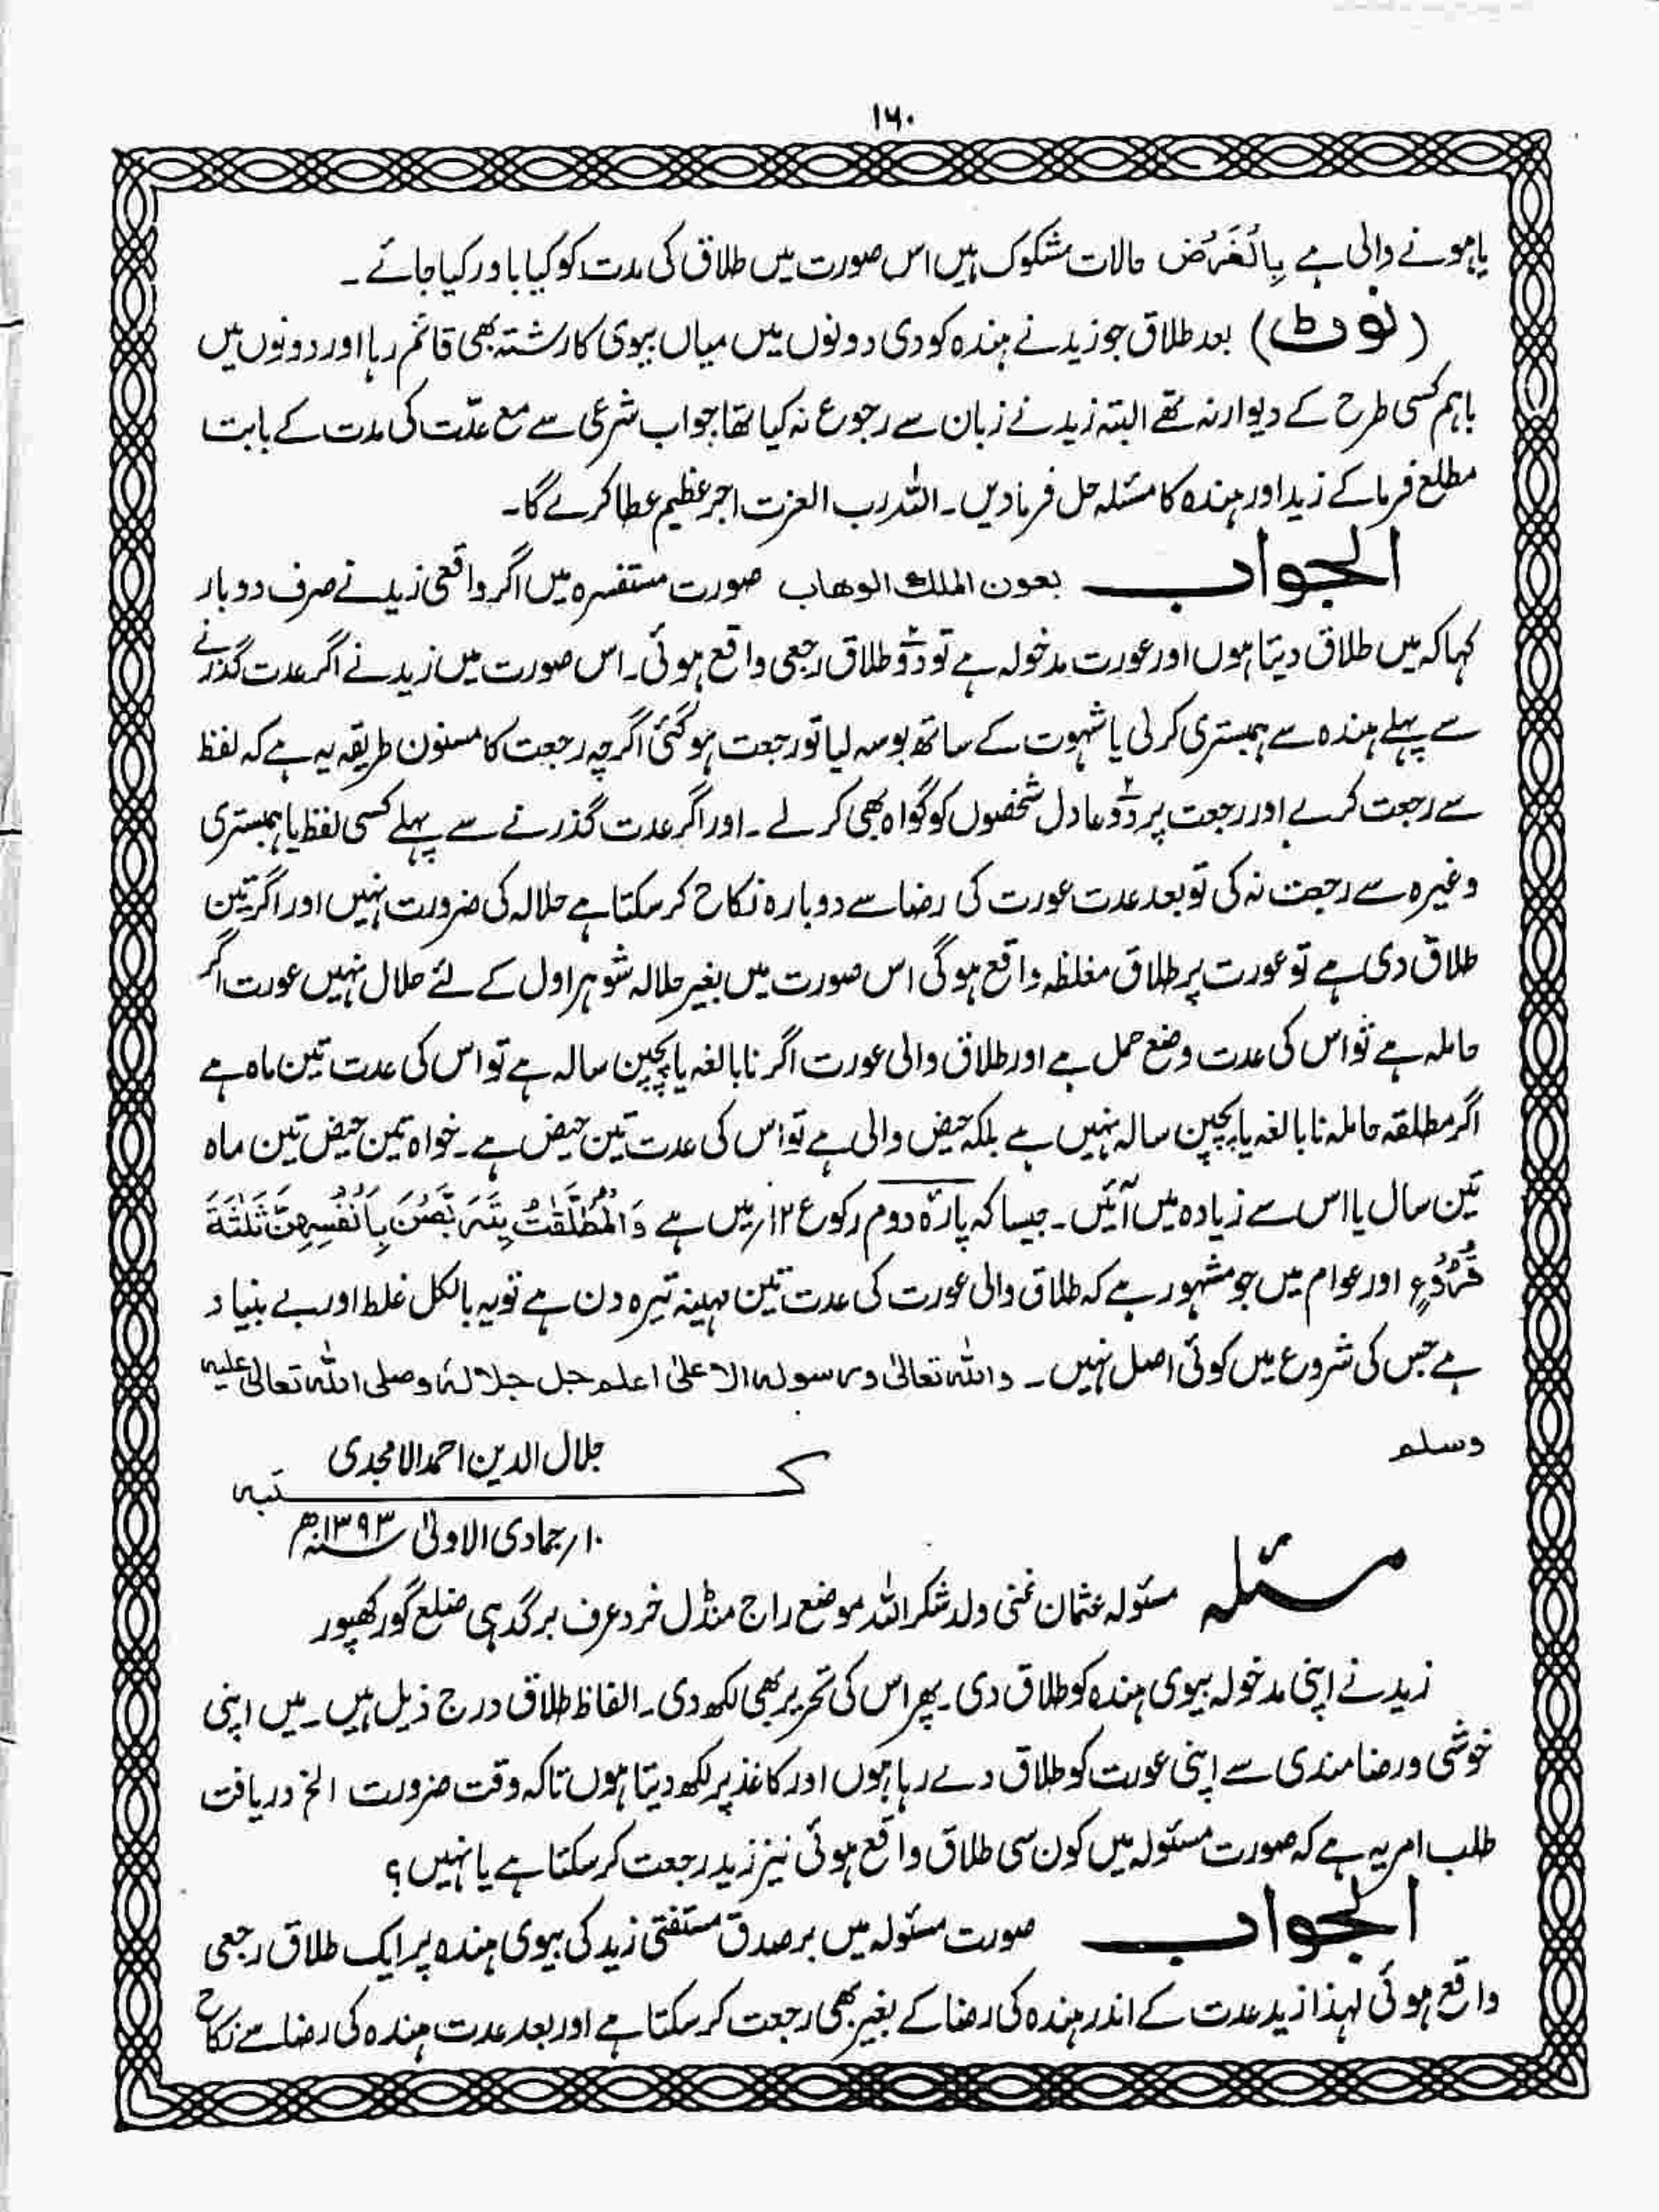 ۱۶۰
یا ہونے والی ہے بِالْغَرَض حالات مشکوک ہیں اس صورت میں طلاق کی مدت کو کیا باور کیا جائے ۔
(نوٹ) بعد طلاق جو زید نے ہندہ کو دی دونوں میں میاں بیوی کا رشتہ بھی قائم رہا اور دونوں میں
باہم کسی طرح کے دیوار نہ تھے البتہ زید نے زبان سے رجوع نہ کیا تھا جواب شرعی سے مع عدّت کی مدت کے بابت
مطلع فرما کے زید اور ہندہ کا مسئلہ حل فرمادیں ۔ اللہ رب العزت اجر عظیم عطا کرے گا ۔
الجواب بعون الملک الوھاب صورت مستفسرہ میں اگر واقعی زید نے صرف دو بار
کہا کہ میں طلاق دیتا ہوں اور عورت مدخولہ ہے تو دو۲ طلاق رجعی واقع ہوئی ۔ اس صورت میں زید نے اگر عدت گذرنے
سے پہلے ہندہ سے ہمبستری کرلی یا شہوت کے ساتھ بوسہ لیا تو رجعت ہوگئی اگرچہ رجعت کا مسنون طریقہ یہ ہے کہ لفظ
سے رجعت کرے اور رجعت پر دو۲ عادل شخصوں کو گواہ بھی کرلے ۔ اور اگر عدت گذرنے سے پہلے کسی لفظ یا ہمبستری
وغیرہ سے رجعت نہ کی تو بعد عدت عورت کی رضا سے دوبارہ نکاح کرسکتا ہے حلالہ کی ضرورت نہیں اور اگر تین
طلاق دی ہے تو عورت پر طلاق مغلظہ واقع ہوگی اس صورت میں بغیر حلالہ شوہر اول کے لئے حلال نہیں عورت اگر
حاملہ ہے تو اس کی عدت وضع حمل ہے اور طلاق والی عورت اگر نابالغہ یا پچپن سالہ ہے تو اس کی عدت تین ماہ ہے
اگر مطلقہ حاملہ نابالغہ یا پچپن سالہ نہیں ہے بلکہ حیض والی ہے تو اس کی عدت تین حیض ہے ۔ خواہ تین حیض تین ماہ
تین سال یا اس سے زیادہ میں آئیں ۔ جیسا کہ پارہ دوم رکوع ۱۲؍ میں ہے وَالْمُطَلَّقٰتُ يَتَرَبَّصْنَ بِاَنْفُسِهِنَّ ثَلٰثَةَ
قُرُوْءٍ اور عوام میں جو مشہور ہے کہ طلاق والی عورت کی عدت تین مہینہ تیرہ دن ہے تو یہ بالکل غلط اور بے بنیاد
ہے جس کی شروع میں کوئی اصل نہیں ۔ واللہ تعالیٰ ورسولہ الاعلیٰ اعلم جل جلالہ وصلی اللہ تعالیٰ علیہ
وسلم
جلال الدین احمد الامجدی
کتبہ
۱۰؍ جمادی الاولیٰ ۱۳۹۳ھ
مسئلہ مسئولہ عثمان غنی ولد شکراللہ موضع راج منڈل خرد عرف برگدہی ضلع گورکھپور
زید نے اپنی مدخولہ بیوی ہندہ کو طلاق دی ۔ پھر اس کی تحریر بھی لکھ دی ۔ الفاظ طلاق درج ذیل ہیں ۔ میں اپنی
خوشی و رضامندی سے اپنی عورت کو طلاق دے رہا ہوں اور کاغذ پر لکھ دیتا ہوں تاکہ وقت ضرورت الخ دریافت
طلب امر یہ ہے کہ صورت مسئولہ میں کون سی طلاق واقع ہوئی نیز زید رجعت کرسکتا ہے یا نہیں ؟
الجواب صورت مسئولہ میں بر صدق مستفتی زید کی بیوی ہندہ پر ایک طلاق رجعی
واقع ہوئی لہذا زید عدت کے اندر ہندہ کی رضا کے بغیر بھی رجعت کرسکتا ہے اور بعد عدت ہندہ کی رضا سے نکاح